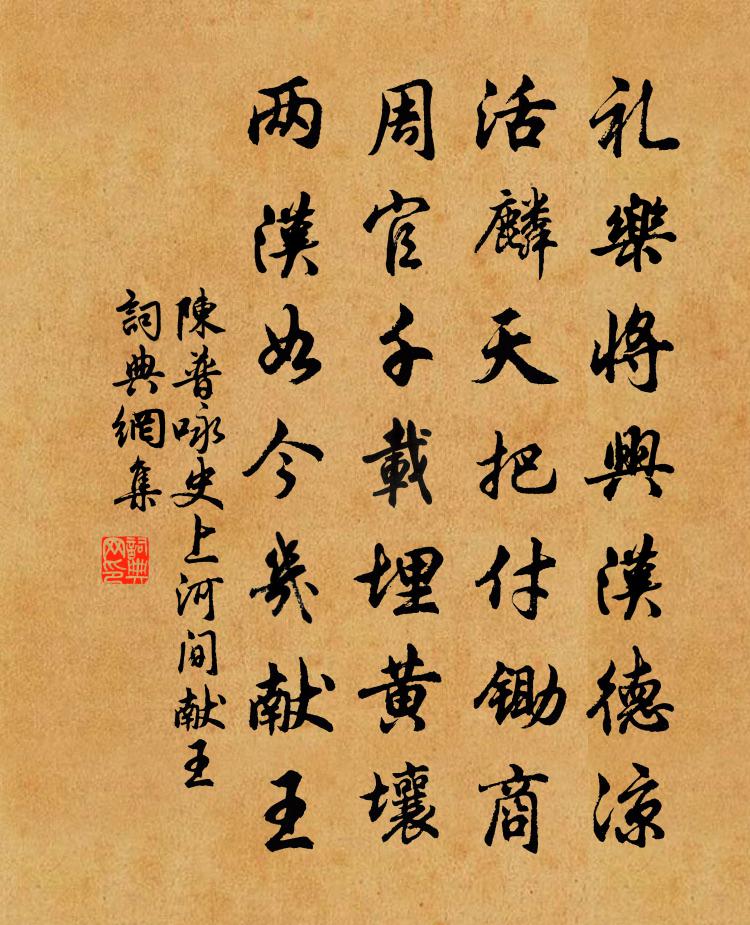 礼樂将興漢德凉
活麟天把付鋤商
周官千載埋黄壤
两漢如今幾献王
陳普咏史上河间献王
詞典網集
詞典网印